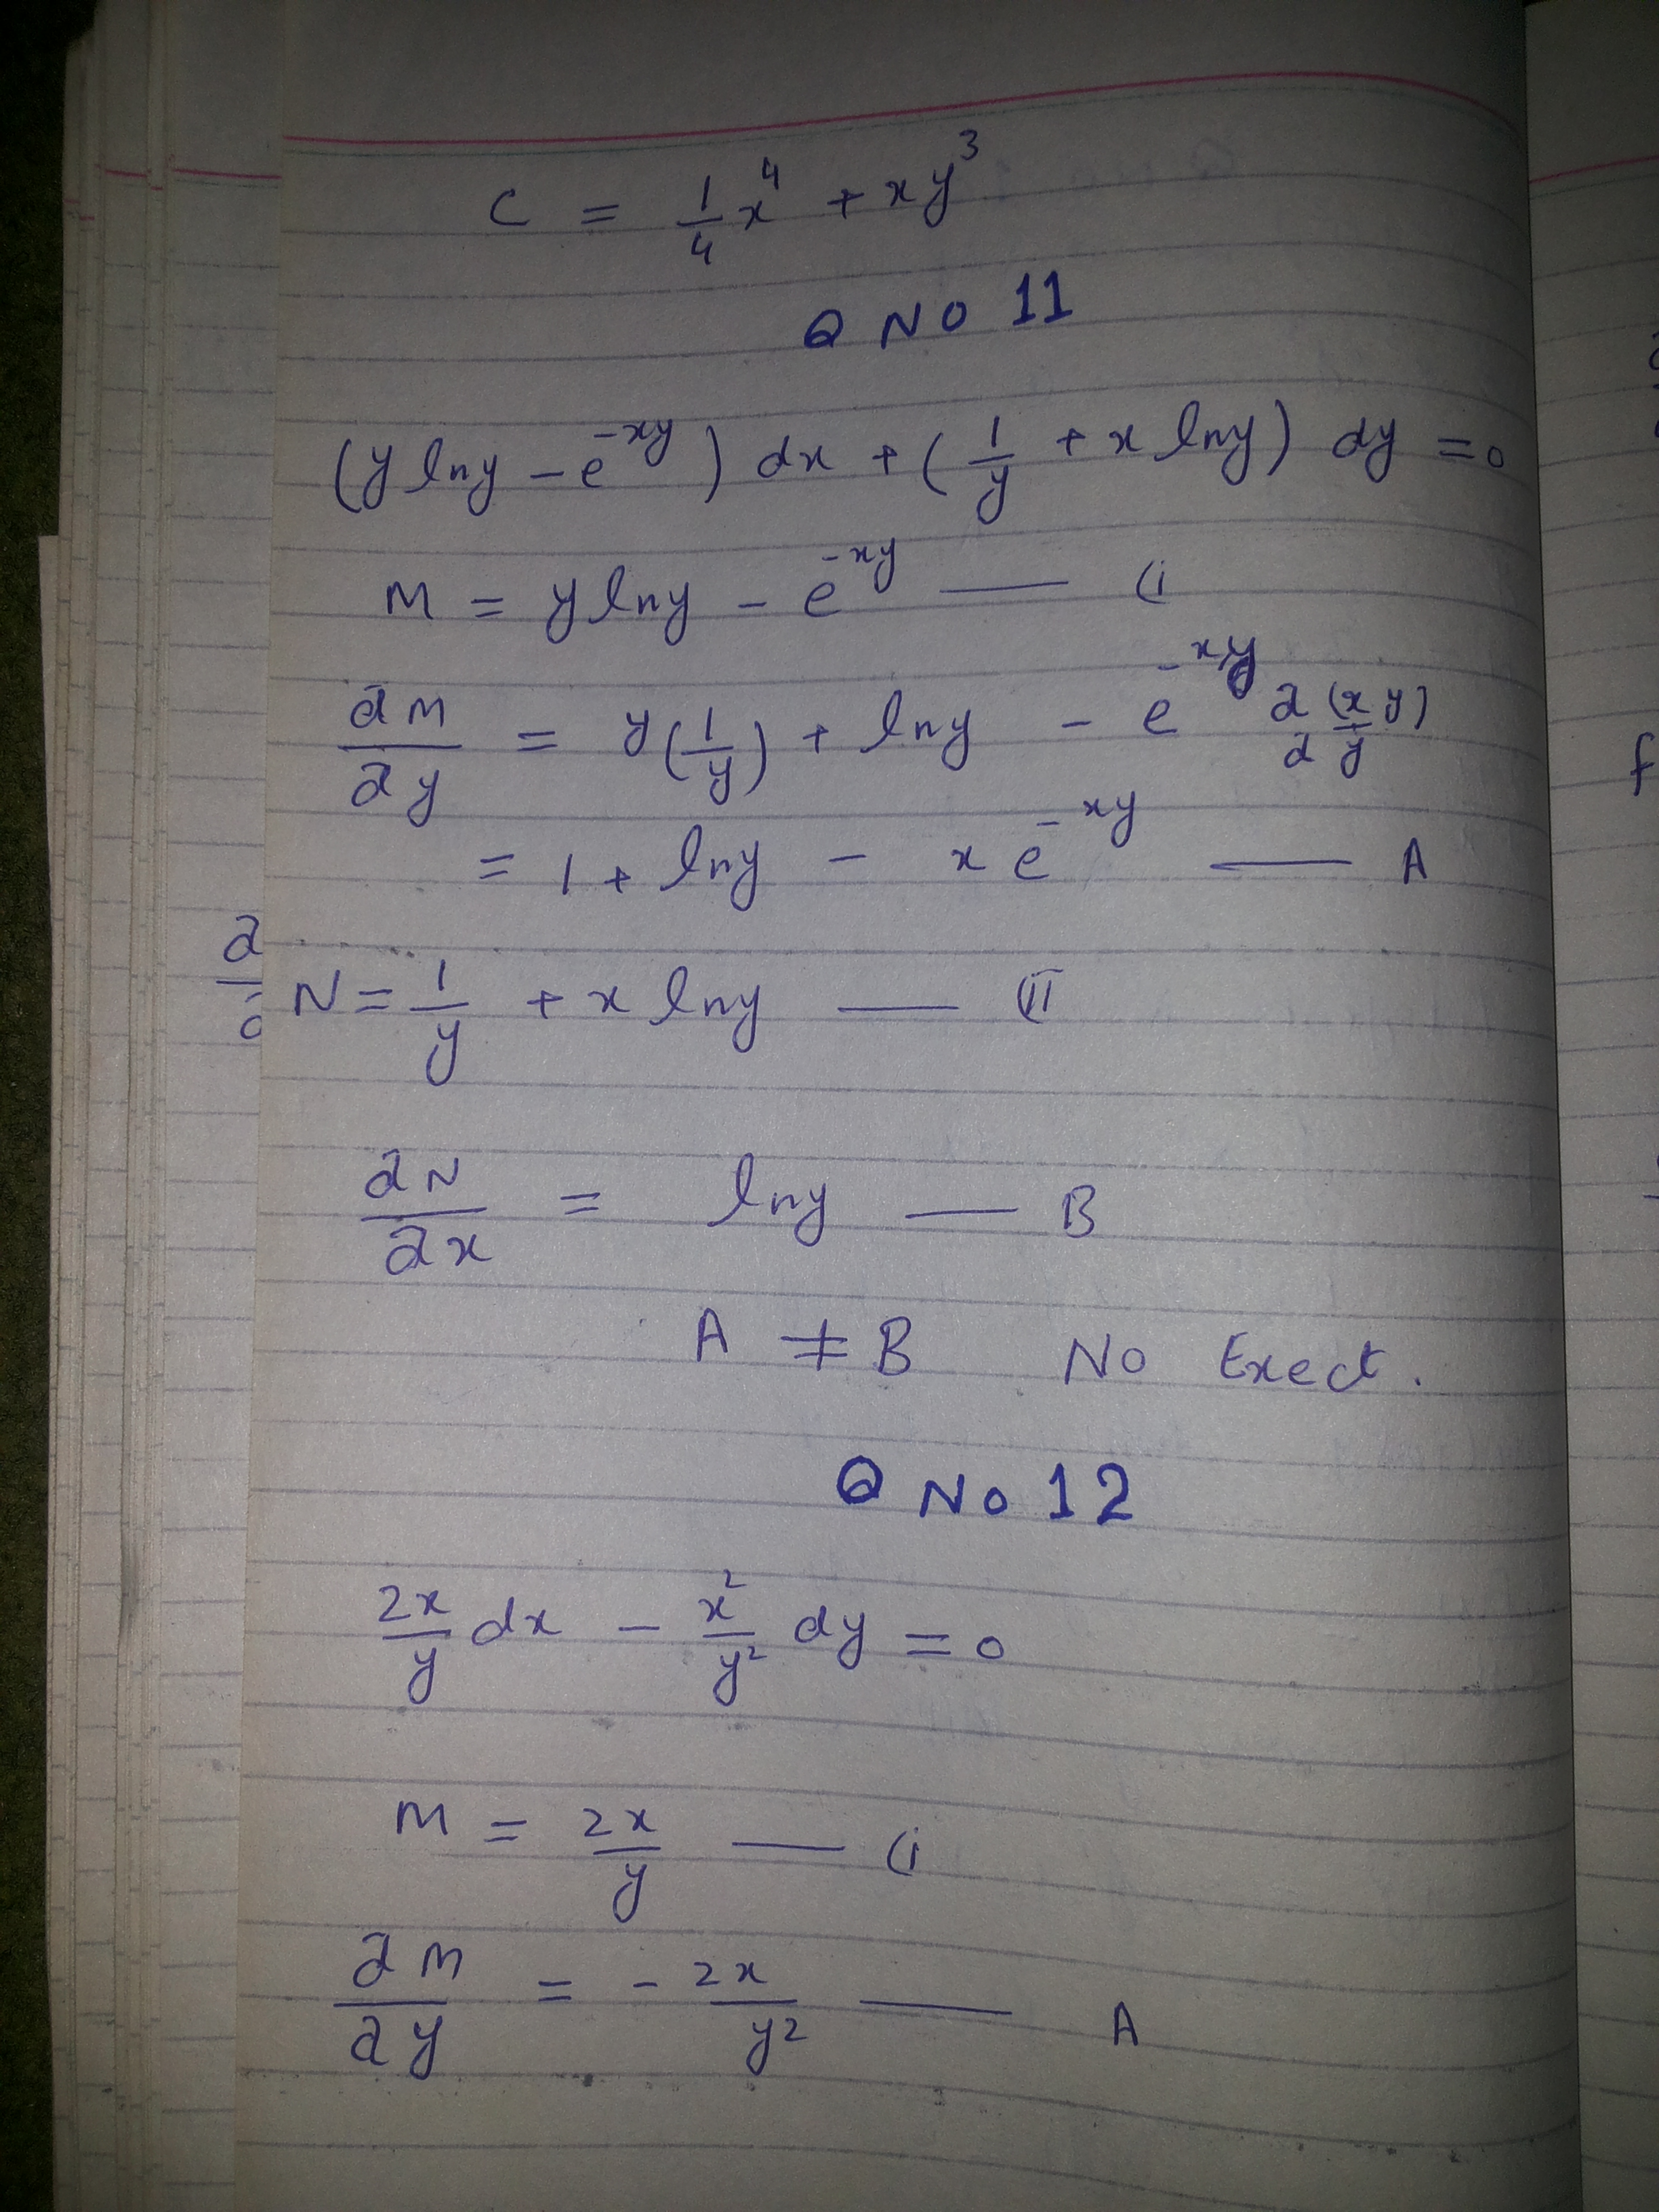 C = 1/4 x⁴ + xy³
Q NO 11
(y lny - e^-xy) dx + (1/y + x lny) dy = 0
M = y lny - e^-xy — (i
∂M/∂y = y(1/y) + lny - e^-xy ∂(xy)/∂y
= 1 + lny - x e^-xy — A
N = 1/y + x lny — (ii
∂N/∂x = lny — B
A ≠ B No Exect.
Q No 12
2x/y dx - x²/y² dy = 0
M = 2x/y — (i
∂M/∂y = - 2x/y² — A